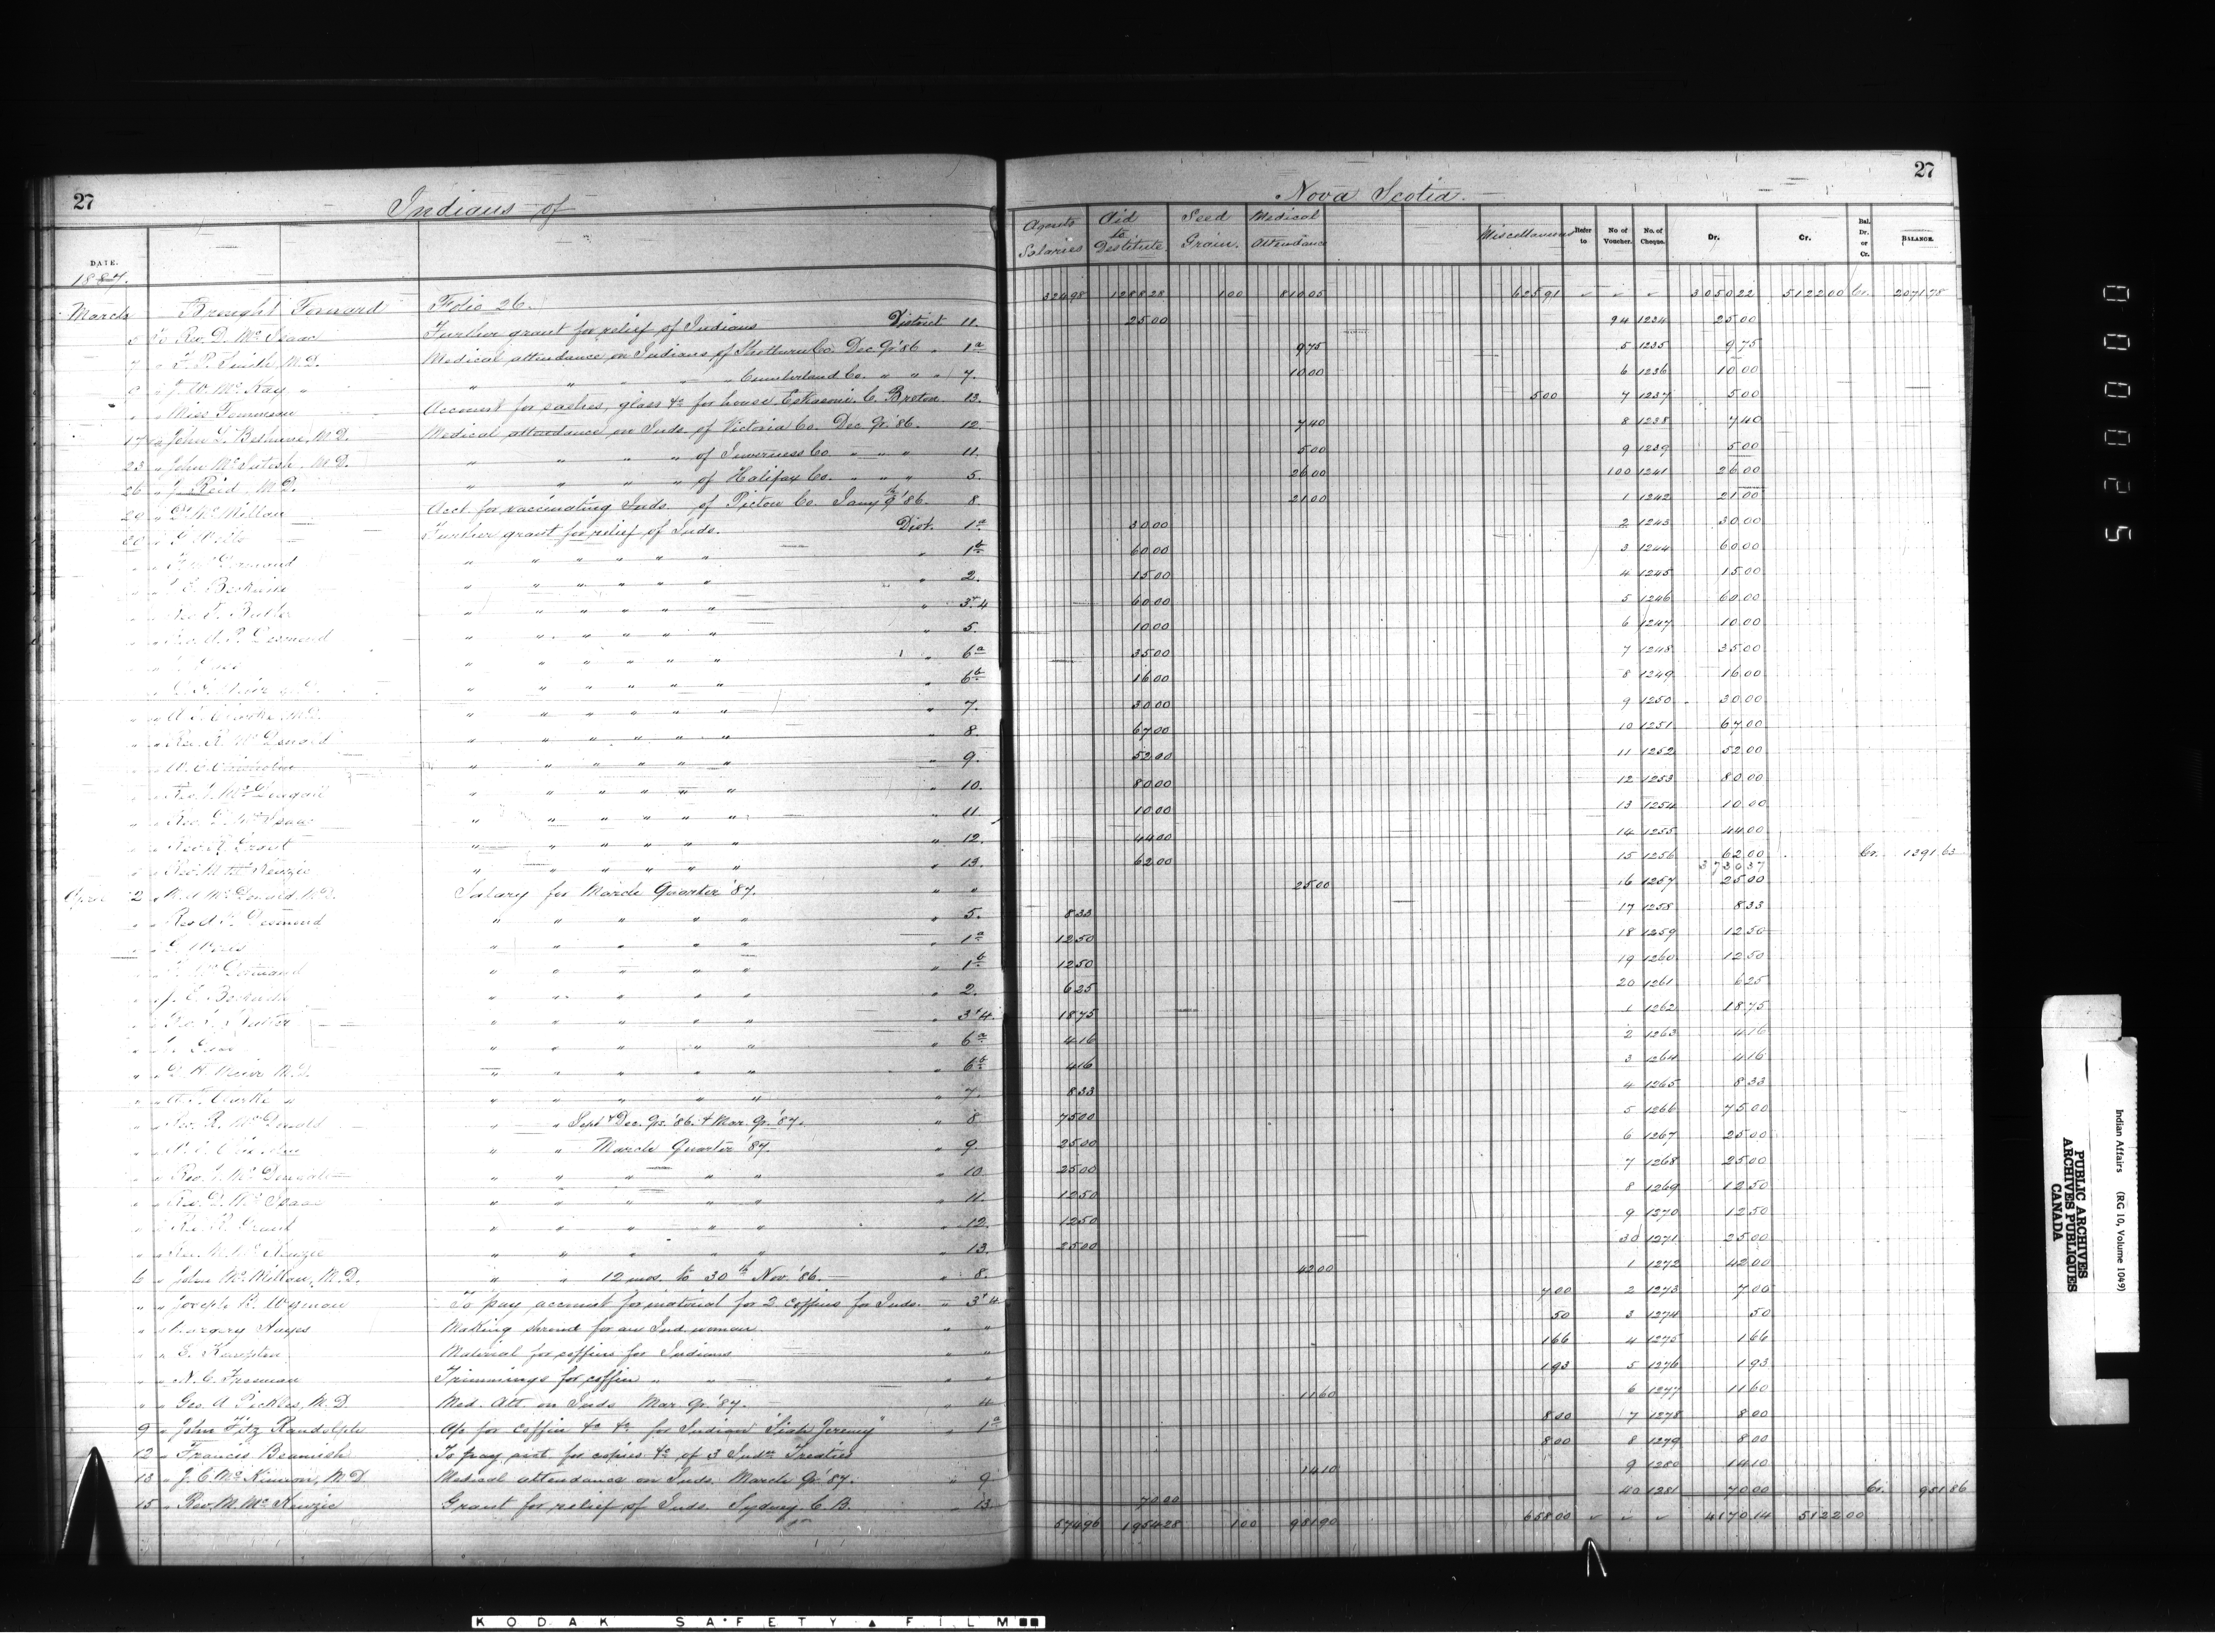 27
Indians of
Nova Scotia.
27
DATE.
Agents Salaries
Aid to Destitute
Seed Grain.
Medical Attendance
Miscellaneous
Refer to
No of Voucher.
No. of Cheque.
Dr.
Cr.
Bal. Dr. or Cr.
BALANCE.
1887.
March Brought Forward Folio 26. 324 98 1288 28 1 00 810 05 625 91 3050 22 5122 00 Cr. 2071 78
5 To Rev. D. McIsaac Further grant for relief of Indians District 11. 25 00 94 1234 25 00
7 Medical attendance on Indians of Co. Dec. Qr '86 1a 9 75 5 1235 9 75
8 " J. W. McKay " " " " " Cumberland Co. " " " 7. 10 00 6 1236 10 00
" " Miss Account for sashes, glass &c for house, Eskasoni C. Breton 13. 5 00 7 1237 5 00
17 " John L. Bethune, M.D. Medical attendance on Inds. of Victoria Co. Dec Qr. '86. 12. 7 40 8 1238 7 40
23 " John McIntosh, M.D. " " " of Inverness Co. " " " 11. 5 00 9 1239 5 00
26 " J. Reid, M.D. " " " of Halifax Co. " " " 5. 26 00 100 1241 26 00
29 " McMillan Acct. for vaccinating Inds. of Pictou Co. '86. 8. 21 00 1 1242 21 00
" Further grant for relief of Inds. Dist. 1a 30 00 2 1243 30 00
" " " " " " " " 1b 60 00 3 1244 60 00
" " J. E. Beckwith " " " " " " " 2. 15 00 4 1245 15 00
" " Rev. T. Butler " " " " " " " 3 & 4 60 00 5 1246 60 00
" " Rev. A. P. Desmond " " " " " " " 5. 10 00 6 1247 10 00
" " " " " " " " " 6a 35 00 7 1248 35 00
" " " " " " " " " 6b 16 00 8 1249 16 00
" " A. T. Clarke, M.D. " " " " " " " 7. 30 00 9 1250 30 00
" " Rev. R. McDonald " " " " " " " 8. 67 00 10 1251 67 00
" " W. C. Chisholm " " " " " " " 9. 52 00 11 1252 52 00
" " Rev. J. McDougall " " " " " " " 10. 80 00 12 1253 80 00
" " Rev. D. McIsaac " " " " " " " 11. 10 00 13 1254 10 00
" " Rev. R. Grant " " " " " " " 12. 44 00 14 1255 44 00
" " Rev. M. McKenzie " " " " " " " 13. 62 00 15 1256 62 00 Cr. 1391 63
3730 37
April 2 " M. A. McDonald, M.D. Salary for March Quarter '87. " " 25 00 16 1257 25 00
" " Rev. A. P. Desmond " " " " " " 5. 8 33 17 1258 8 33
" " " " " " " " 1a 12 50 18 1259 12 50
" " " " " " " " 1b 12 50 19 1260 12 50
" " J. E. Beckwith " " " " " " 2. 6 25 20 1261 6 25
" " Rev. T. Butler " " " " " " 3 & 4. 18 75 1 1262 18 75
" " " " " " " " 6a 4 16 2 1263 4 16
" " D. H. Muir M.D. " " " " " " 6b 4 16 3 1264 4 16
" " A. T. Clarke " " " " " " " 7. 8 33 4 1265 8 33
" " Rev. R. McDonald " " Sept & Dec. Qrs. '86. & Mar. Qr. '87. " 8 75 00 5 1266 75 00
" " W. C. Chisholm " " March Quarter '87. " 9. 25 00 6 1267 25 00
" " Rev. J. McDougall " " " " " " 10. 25 00 7 1268 25 00
" " Rev. D. McIsaac " " " " " " 11. 12 50 8 1269 12 50
" " Rev. R. Grant " " " " " " 12. 12 50 9 1270 12 50
" " Rev. M. McKenzie " " " " " " 13. 25 00 30 1271 25 00
6 " John McMillan, M.D. " " 12 mos. to 30th Nov. '86. " 8. 42 00 1 1272 42 00
" " Joseph R. Wyman To pay account for material for 2 coffins for Inds. " 3 & 4 7 00 2 1273 7 00
" " Margery Hayes Making shroud for an Ind. woman " " 50 3 1274 50
" " E. Kempton Material for coffins for Indians " " 1 66 4 1275 1 66
" " N. C. Freeman Trimmings for coffin " " " " 1 93 5 1276 1 93
" " Geo. A. Pickles, M.D Med. Att. on Inds Mar Qr. '87. " 4 11 60 6 1277 11 60
9 " John Fitz Randolph for coffin &c &c for Indian "Siah Jeremy" " 1a 8 00 7 1278 8 00
12 " Francis Beamish To pay acct. for copies &c of 3 Indn Treaties 8 00 8 1279 8 00
13 " J. C. McKinnon, M.D Medical attendance on Inds. March Qr. '87. " 9 14 10 9 1280 14 10
15 " Rev. M. McKenzie Grant for relief of Inds. Sydney C. B. 13 70 00 40 1281 70 00 Cr. 951 86
574 96 1954 28 1 00 981 90 658 00 4170 14 5122 00
0000025
Indian Affairs (RG 10, Volume 1049)
PUBLIC ARCHIVES
ARCHIVES PUBLIQUES
CANADA
KODAK SAFETY FILM